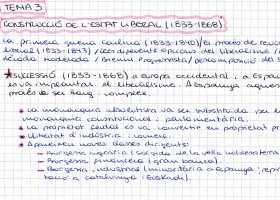 TEMA 3
CONSTRUCCIÓ DE L'ESTAT LIBERAL (1833-1868)
La primera guerra carlina (1833-1840) el procés de revolu
liberal (1833-1843) / Les diferents opcions del liberalisme /
Dècada moderada / Bienni Progressista / descomposició del s
★ SUCCESSIÓ (1833-1868) a europa occidental i a espa
es va implantar el liberalisme. A Espanya aques
procés va ser llarg i complex.
• La monarquia absolutista va ser substituïda per l
monarquia constitucional i parlamentària.
• La propietat feudal es va convertir en propietat pr
• Llibertat d'indústria i comerç.
• Apareixen noves classes dirigents:
- Burgesia agrària (sorgida de la vella noblesa terra
- Burgesia financera (gran banca).
- Burgesia industrial (minoritària a Espanya, repr
tava a Catalunya i Euskadi).